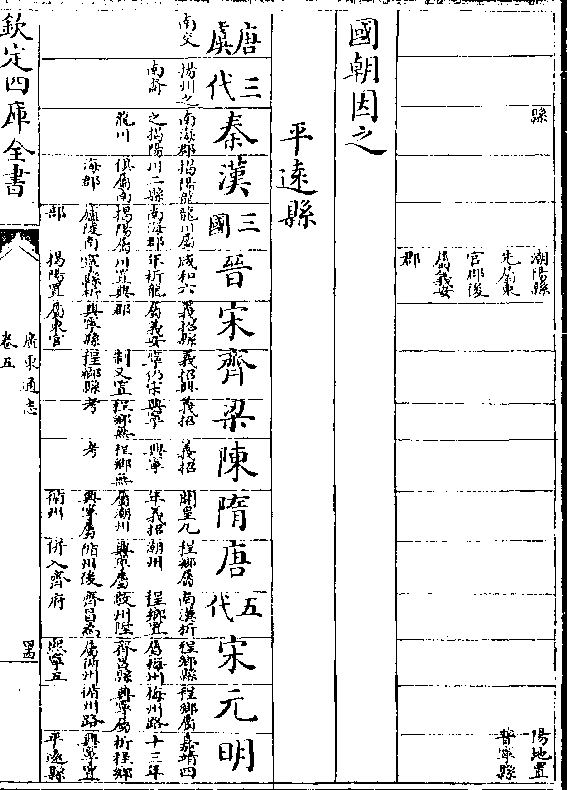 縣
潮陽縣
先屬東
官郡後
屬義安
郡
陽地置
普寧縣
國朝因之
平遠縣
唐虞
三代
秦
漢
三國
晉
宋
齊
梁
陳
隋
唐
五代
宋
元
明
南交
揚州之
南裔
南海郡
之揭陽
龍川
揭陽龍
川二縣
俱屬南
海郡
龍川屬
南海郡
揭陽屬
廬陵南
部
咸和六
年析龍
川置興
寧縣析
揭陽置
義招縣
屬義安
郡
興寧縣
屬東官
義招興
寧仍宋
制又置
程鄉縣
義招
興寧
程鄉無
考
義招
興寧
程鄉無
考
開皇九
年義招
屬潮州
興寧屬
循州
程鄉屬
潮州
興寧屬
循州後
併入齊
南漢析
程鄉置
敬州陞
齊昌為
府
程鄉縣
屬梅州
齊昌縣
屬循州
熙寧五
程鄉屬
梅州路
興寧屬
循州路
嘉靖四
十三年
析程鄉
興寧置
平遠縣
欽定四庫全書
廣東通志
卷五